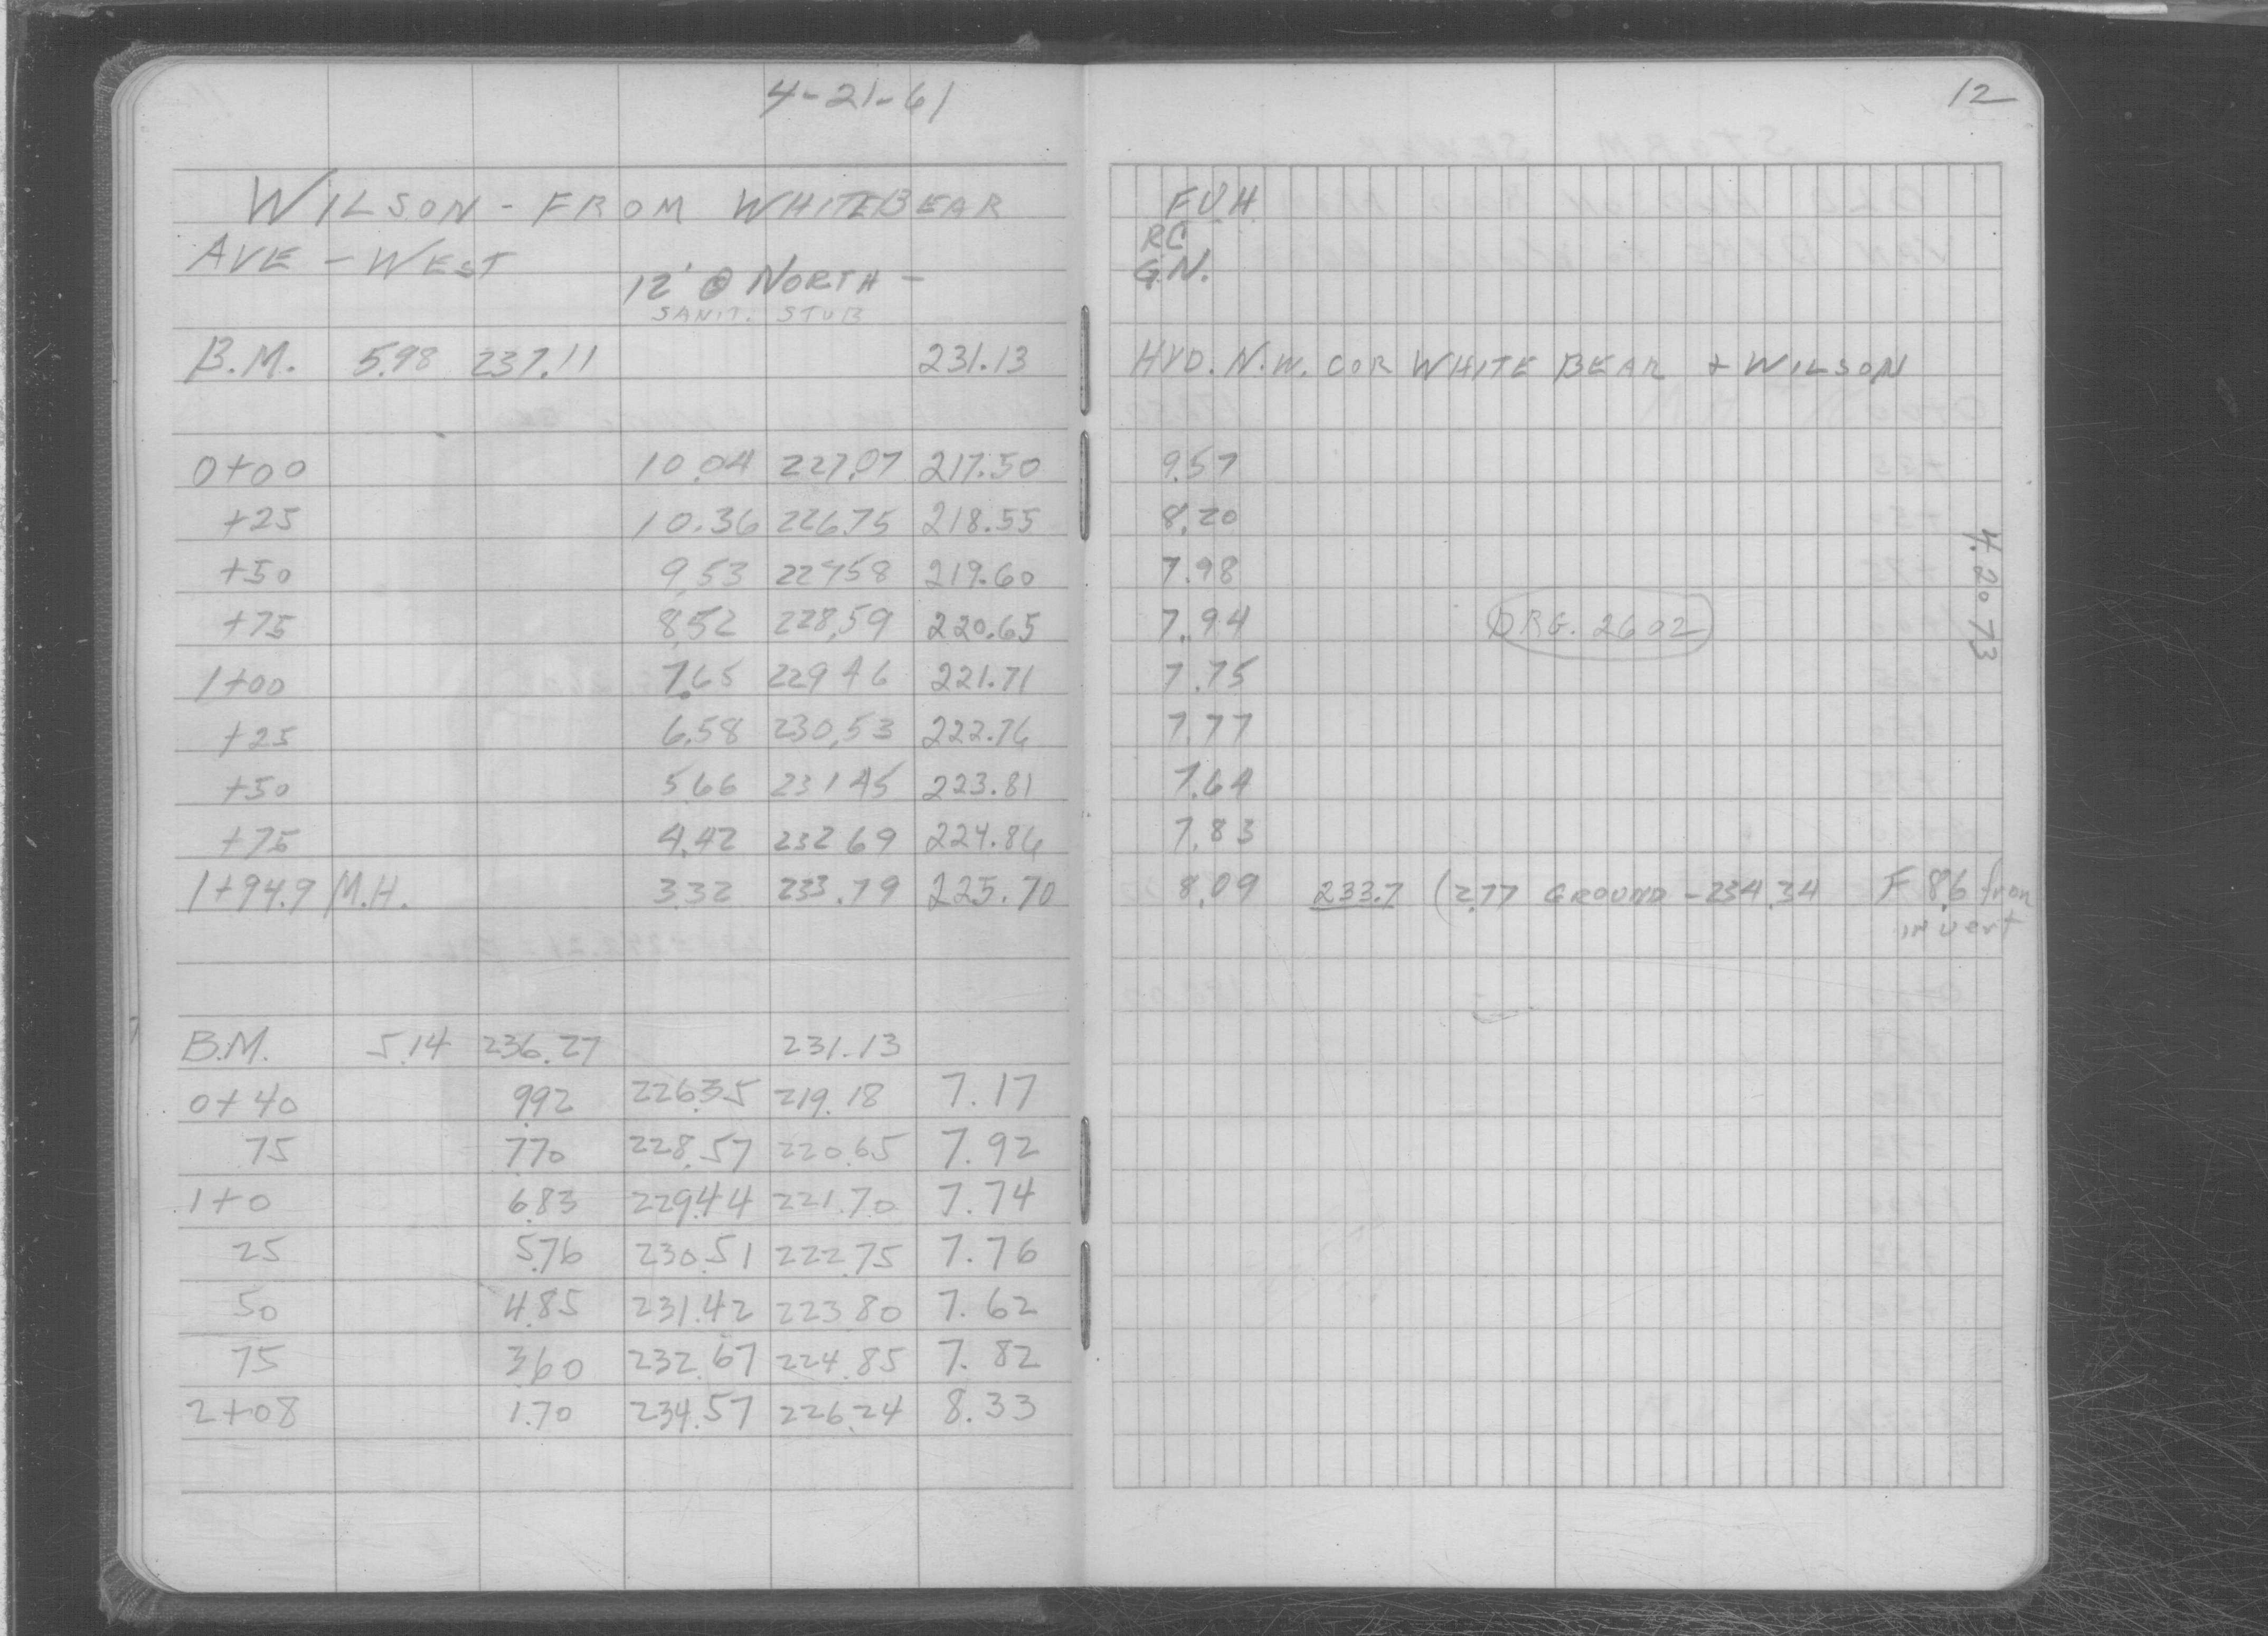 4-21-61
WILSON - FROM WHITEBEAR
AVE - WEST
12' @ NORTH -
SANIT. STUB
B.M. 5.98 237.11 231.13
0+00 10.04 227.07 217.50
+25 10.36 226.75 218.55
+50 9.53 227 58 219.60
+75 8.52 228.59 220.65
1+00 7.65 229 46 221.71
+25 6.58 230.53 222.76
+50 5.66 231 45 223.81
+75 4.42 232 69 224.86
1+94.9 M.H. 3.32 233.79 225.70
B.M. 5.14 236.27 231.13
0+40 9.92 226.35 219.18 7.17
75 7.70 228.57 220.65 7.92
1+0 6.83 229.44 221.70 7.74
25 5.76 230.51 222.75 7.76
50 4.85 231.42 223.80 7.62
75 3.60 232.67 224.85 7.82
2+08 1.70 234.57 226.24 8.33
12
F.U.H.
RC
G.N.
HYD. N.W. COR WHITE BEAR + WILSON
9.57
8.20
7.98
7.94 ORG. 2602
7.75
7.77
7.64
7.83
8.09 233.7 (2.77 GROUND - 234.34 F 8.6 from
invert
4.20 73